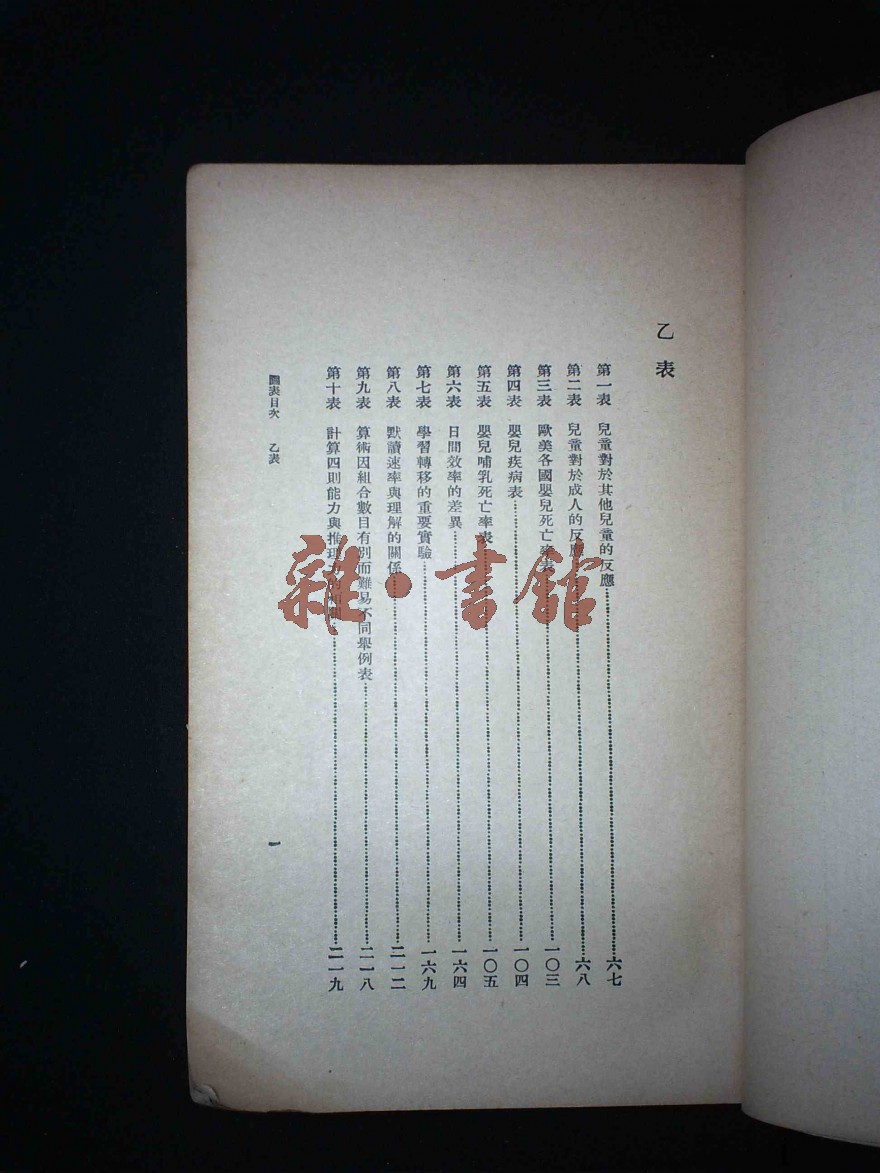 乙表
第一表 兒童對於其他兒童的反應……六七
第二表 兒童對於成人的反應……六八
第三表 歐美各國嬰兒死亡率表……一〇三
第四表 嬰兒疾病表……一〇四
第五表 嬰兒哺乳死亡率表……一〇五
第六表 日間效率的差異……一六四
第七表 學習轉移的重要實驗……一六九
第八表 默讀速率與理解的關係……二一二
第九表 算術因組合數目有別而難易不同舉例表……二一八
第十表 計算四則能力與推理……二一九
圖表目次 乙表
一
雜·書館